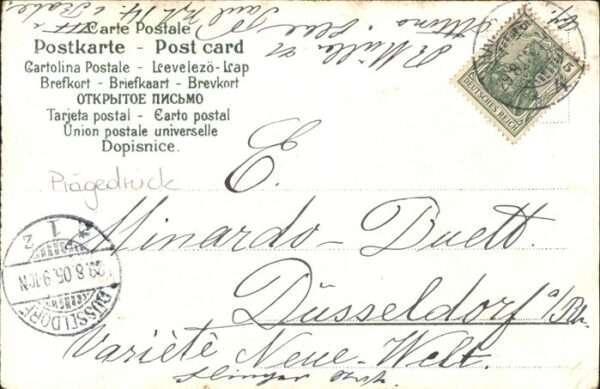 Carte Postale
Postkarte - Post card
Cartolina Postale - Levelező-Lap
Brefkort - Briefkaart - Brevkort
ОТКРЫТОЕ ПИСЬМО
Tarjeta postal - Carto postal
Union postale universelle
Dopisnice.
Prägedruck
5
DEUTSCHES REICH
E.
Minardo - Duett.
Düsseldorf a/Rh.
Varietè Neue - Welt.
DÜSSELDORF
29.8.05. 9-10N
1 z